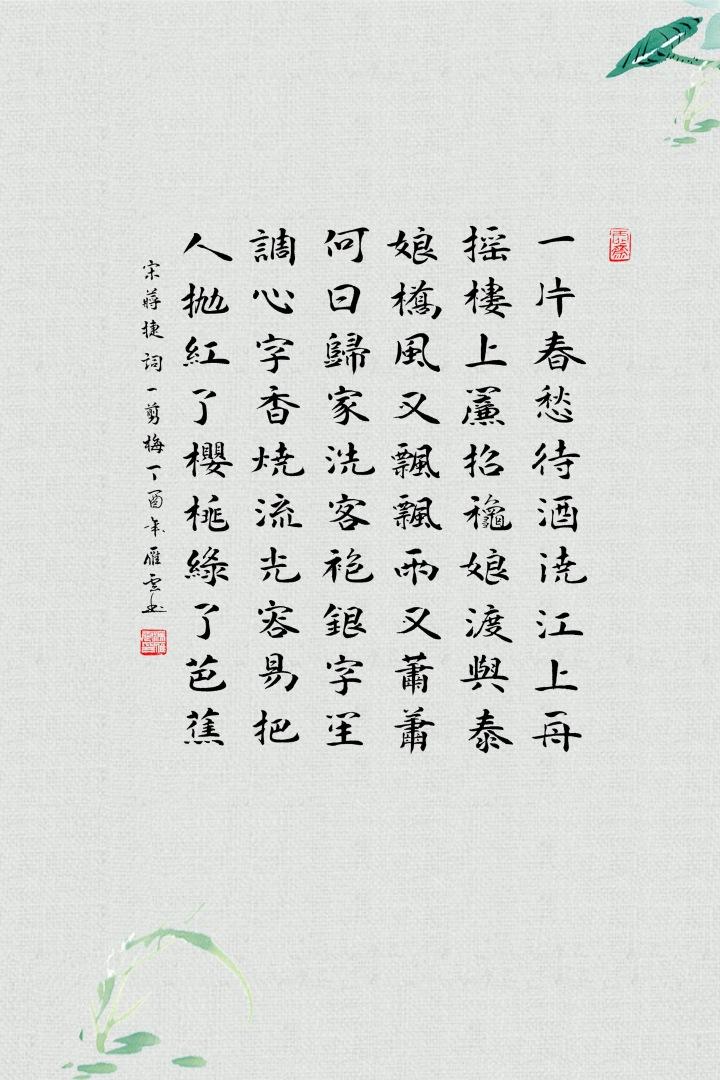 一片春愁待酒浇江上舟
摇樓上簾招龝娘渡與泰
娘橋風又飄飄雨又蕭蕭
何日歸家洗客袍銀字笙
調心字香烧流光容易把
人抛紅了櫻桃綠了芭蕉
宋蔣捷詞一剪梅丁酉年雁雲书